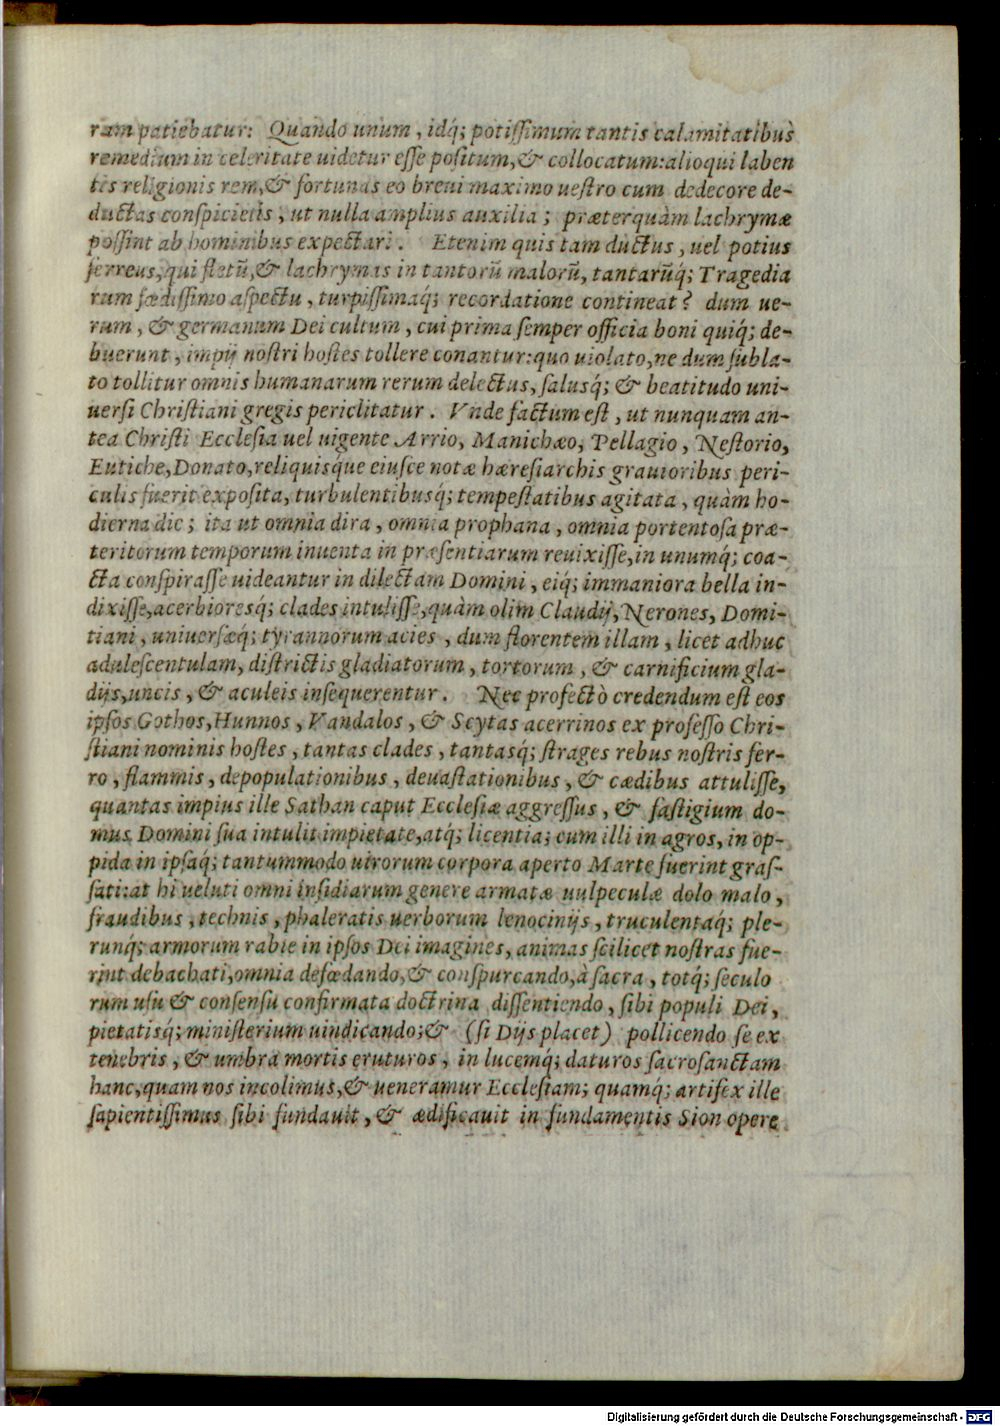 ram patiebatur: Quando unum, idq́; potiſſimum tantis calamitatibus
remedium in celeritate uidetur eſſe poſitum, & collocatum: alioqui laben
tes religionis rem, & fortunas eo breui maximo ueſtro cum dedecore de-
ductas conſpicietis, ut nulla amplius auxilia; præterquàm lachrymæ
poſſint ab hominibus expectari. Etenim quis tam ductus, uel potius
ferreus, qui fletū, & lachrymas in tantorū malorū, tantarūq́; Tragedia
rum fœdiſſimo aſpectu, turpiſſimaq́; recordatione contineat? dum ue-
rum, & germanum Dei cultum, cui prima ſemper officia boni quiq́; de-
buerunt, impij noſtri hoſtes tollere conantur: quo uiolato, ne dum ſubla-
to tollitur omnis humanarum rerum delectus, ſalusq́; & beatitudo uni-
uerſi Chriſtiani gregis periclitatur. Vnde factum eſt, ut nunquam an-
tea Chriſti Eccleſia uel uigente Arrio, Manichæo, Pellagio, Neſtorio,
Eutiche, Donato, reliquisq́ue eiuſce notæ hæreſiarchis grauioribus peri-
culis fuerit expoſita, turbulentibusq́; tempeſtatibus agitata, quàm ho-
dierna die; ita ut omnia dira, omnia prophana, omnia portentoſa præ-
teritorum temporum inuenta in præſentiarum reuixiſſe, in unumq́; coa-
cta conſpiraſſe uideantur in dilectam Domini, eiq́; immaniora bella in-
dixiſſe, acerbioresq́; clades intuliſſe, quàm olim Claudij, Nerones, Domi-
tiani, uniuerſæq́; tyrannorum acies, dum florentem illam, licet adhuc
aduleſcentulam, diſtrictis gladiatorum, tortorum, & carnificium gla-
dijs, uncis, & aculeis inſequerentur. Nec profectò credendum eſt eos
ipſos Gothos, Hunnos, Vandalos, & Scytas acerrinos ex profeſſo Chri-
ſtiani nominis hoſtes, tantas clades, tantasq́; ſtrages rebus noſtris fer-
ro, flammis, depopulationibus, deuaſtationibus, & cædibus attuliſſe,
quantas impius ille Sathan caput Eccleſiæ aggreſſus, & faſtigium do-
mus Domini ſua intulit impietate, atq́; licentia; cum illi in agros, in op-
pida in ipſaq́; tantummodo uirorum corpora aperto Marte fuerint graſ-
ſati: at hi ueluti omni inſidiarum genere armatæ uulpeculæ dolo malo,
fraudibus, technis, phaleratis uerborum lenocinijs, truculentaq́; ple-
runq́; armorum rabie in ipſos Dei imagines, animas ſcilicet noſtras fue-
rint debachati, omnia defœdando, & conſpurcando, à ſacra, totq́; ſeculo
rum uſu & conſenſu confirmata doctrina diſſentiendo, ſibi populi Dei,
pietatisq́; miniſterium uindicando; & (ſi Dijs placet) pollicendo ſe ex
tenebris, & umbra mortis eruturos, in lucemq́; daturos ſacroſanctam
hanc, quam nos incolimus, & ueneramur Eccleſiam; quamq́; artifex ille
ſapientiſſimus ſibi fundauit, & ædificauit in fundamentis Sion opere
Digitalisierung gefördert durch die Deutsche Forschungsgemeinschaft - DFG